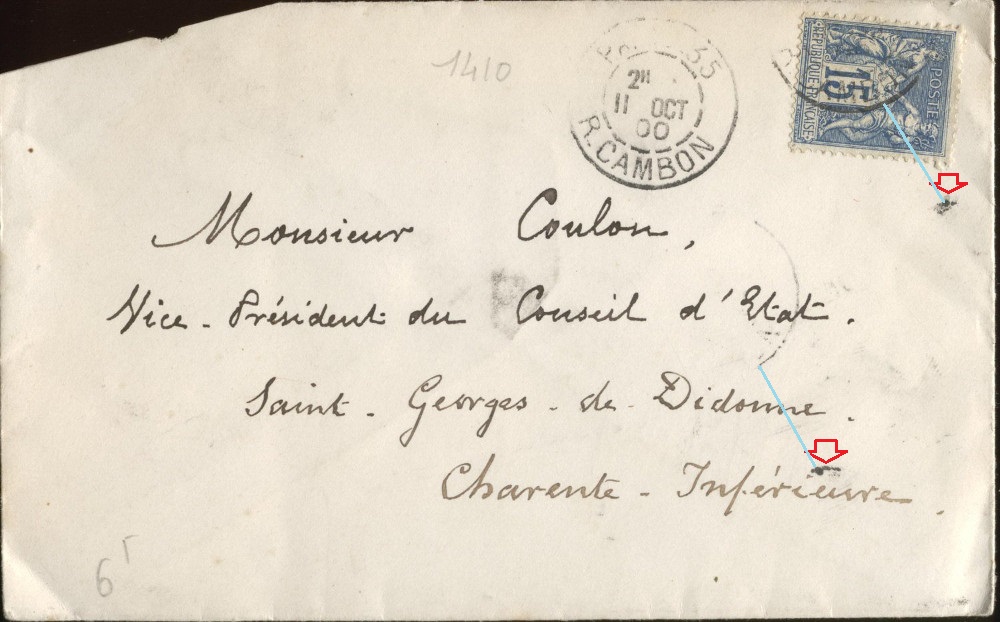 1410
PARIS 35
2ᴱ
11 OCT
00
R. CAMBON
POSTES
15
REPUBLIQUE FRANCAISE
Monsieur Coulon,
Vice-Président du Conseil d'Etat.
Saint-Georges-de-Didonne.
Charente-Inférieure.
6